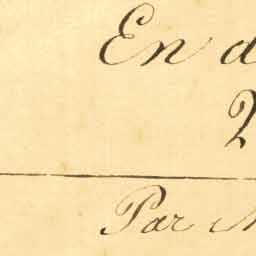 En d
2
Par